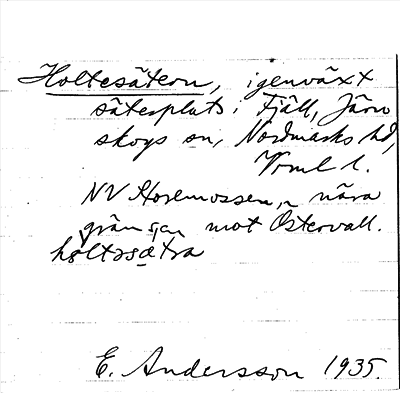 Holtesätern, igenväxt
säterplats i Fjäll, Järn
skogs sn, Nordmarks hd,
Vrml l.
NV Horrmossen, nära
gränsen mot Östervall.
hòltəsætra
E. Andersson 1935.